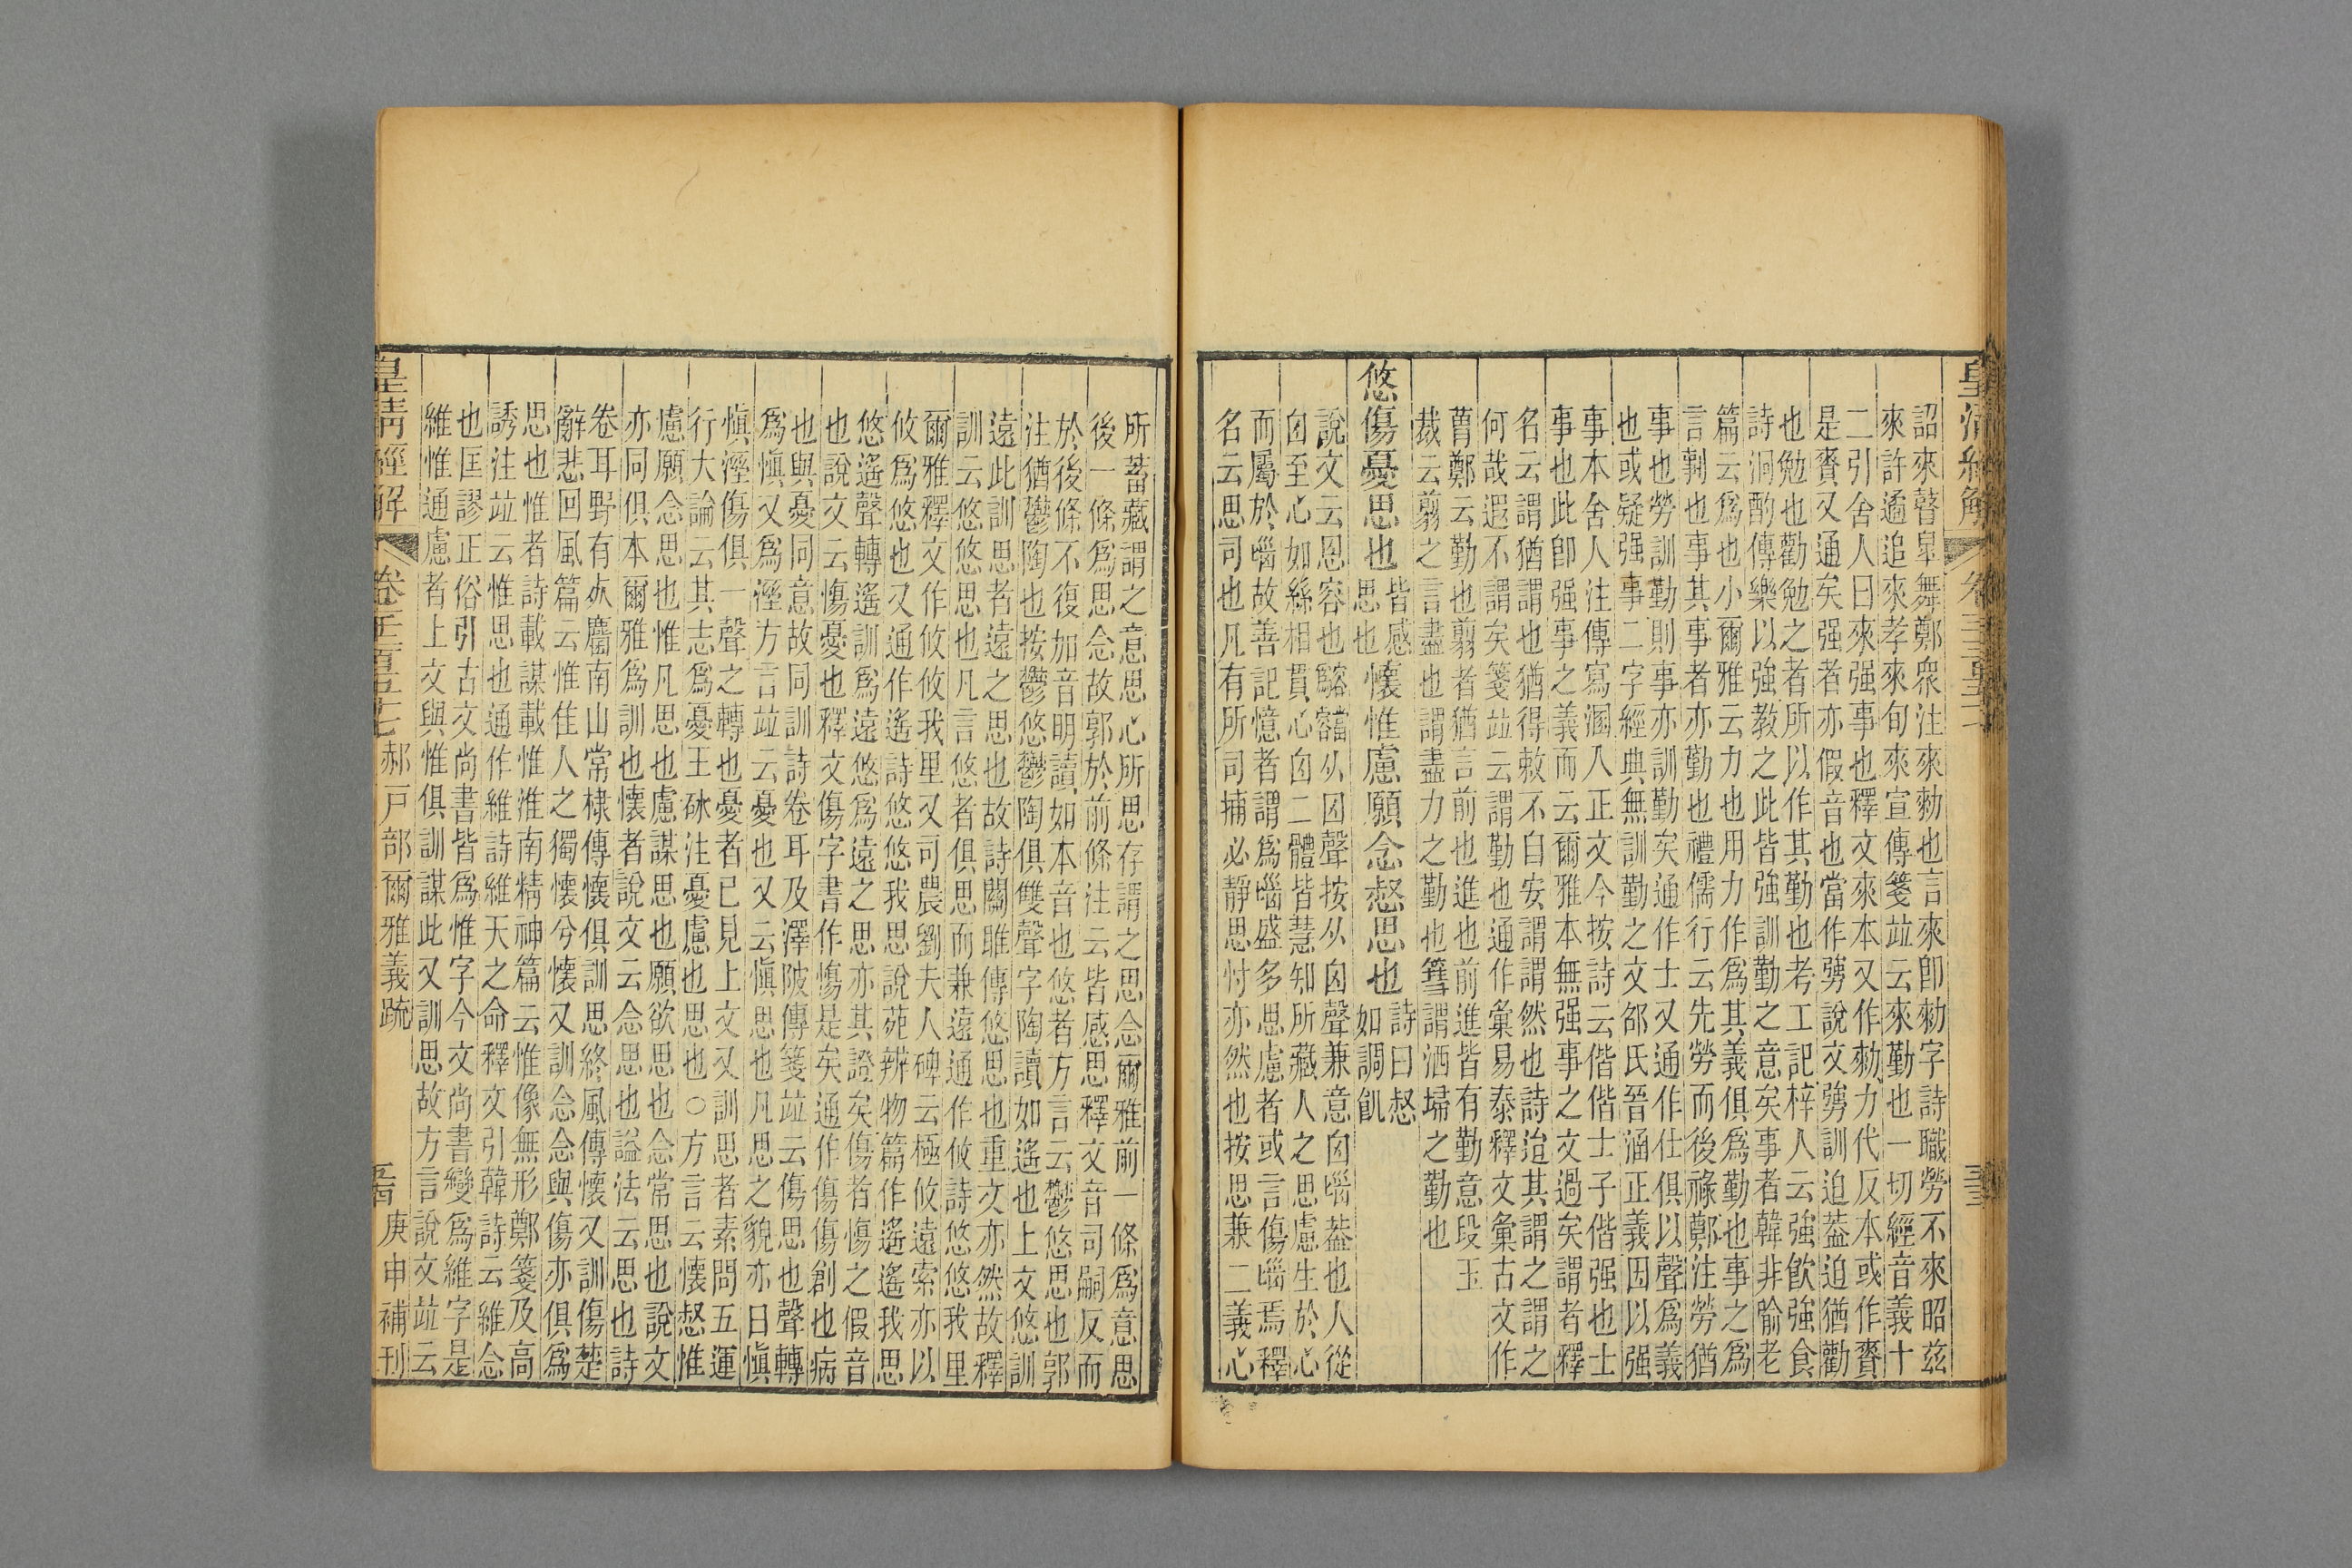 皇清經解 卷千二百五十七 三三
詔來瞽皋舞鄭衆注來勑也言來卽勑字詩職勞不來昭茲
來許遹追來孝來旬來宣傳箋竝云來勤也一切經音義十
二引舍人曰來强事也釋文來本又作勑力代反本或作賚
是賚又通矣强者亦假音也當作勥說文勥訓迫葢迫猶勸
也勉也勸勉之者所以作其勤也考工記梓人云強飮強食
詩泂酌傳樂以強教之此皆強訓勤之意矣事者韓非喻老
篇云爲也小爾雅云力也用力作爲其義俱爲勤也事之爲
言剚也事其事者亦勤也禮儒行云先勞而後祿鄭注勞猶
事也勞訓勤則事亦訓勤矣通作士又通作仕俱以聲爲義
也或疑强事二字經典無訓勤之文郤氏晉涵正義因以强
事本舍人注傳寫溷入正文今按詩云偕偕士子偕强也士
事也此卽强事之義而云爾雅本無强事之文過矣謂者釋
名云謂猶謂也猶得敕不自安謂謂然也詩迨其謂之謂之
何哉遐不謂矣箋竝云謂勤也通作彙易泰釋文彙古文作
蒷鄭云勤也翦者猶言前也進也前進皆有勤意段玉
裁云翦之言盡也謂盡力之勤也篲謂洒埽之勤也
悠傷憂思也皆感思也懷惟慮願念惄思也詩曰惄如調飢
說文云恖容也䜭㕡從囟聲按从囟聲兼意囟𦛁葢也人從
囟至心如絲相貫心囟二體皆慧知所藏人之思慮生於心
而屬於𦛁故善記憶者謂爲𦛁盛多思慮者或言傷𦛁焉釋
名云思司也凡有所司捕必靜思忖亦然也按思兼二義心
所蓄藏謂之意思心所思存謂之思念爾雅前一條爲意思
後一條爲思念故郭於前條注云皆感思釋文音司嗣反而
於後條不復加音明讀如本音也悠者方言云鬱悠思也郭
注猶鬱陶也按鬱悠鬱陶俱雙聲字陶讀如遙也上文悠訓
遠此訓思者遠之思也故詩關雎傳悠思也重文亦然故釋
訓云悠悠思也凡言悠者俱思而兼遠通作攸詩悠悠我里
爾雅釋文作攸攸我里又司農劉夫人碑云極攸遠索亦以
攸爲悠也又通作遙詩悠悠我思說苑辨物篇作遙遙我思
悠遙聲轉遙訓爲遠悠爲遠之思亦其證矣傷者慯之假音
也說文云慯憂也釋文傷字書作慯是矣通作傷傷創也病
也與憂同意故同訓詩卷耳及澤陂傳箋竝云傷思也聲轉
爲愼又爲溼方言竝云憂也又云愼思也凡思之貌亦曰愼
愼溼傷俱一聲之轉也憂者已見上文又訓思者素問五運
行大論云其志爲憂王砅注憂慮也思也○方言云懷惄惟
慮願念思也惟凡思也慮謀思也願欲思也念常思也說文
亦同俱本爾雅爲訓也懷者說文云念思也謚法云思也詩
卷耳野有死麕南山常棣傳懷俱訓思終風傳懷又訓傷楚
辭悲回風篇云惟佳人之獨懷兮懷又訓念念與傷亦俱爲
思也惟者詩載謀載惟淮南精神篇云惟像無形鄭箋及高
誘注竝云惟思也通作維詩維天之命釋文引韓詩云維念
也匡謬正俗引古文尚書皆爲惟字今文尚書變爲維字是
維惟通慮者上文與惟俱訓謀此又訓思故方言說文竝云
皇清經解 卷千二百五十七 郝戸部爾雅義疏 庚申補刊